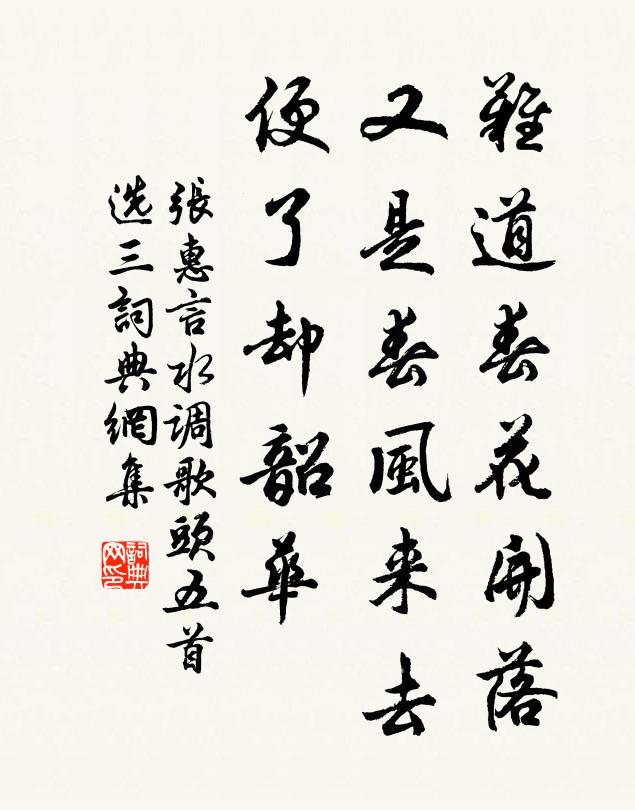 難道春花開落
又是春風来去
便了却韶華
張惠言水調歌頭五首
选三詞典網集
詞典网印